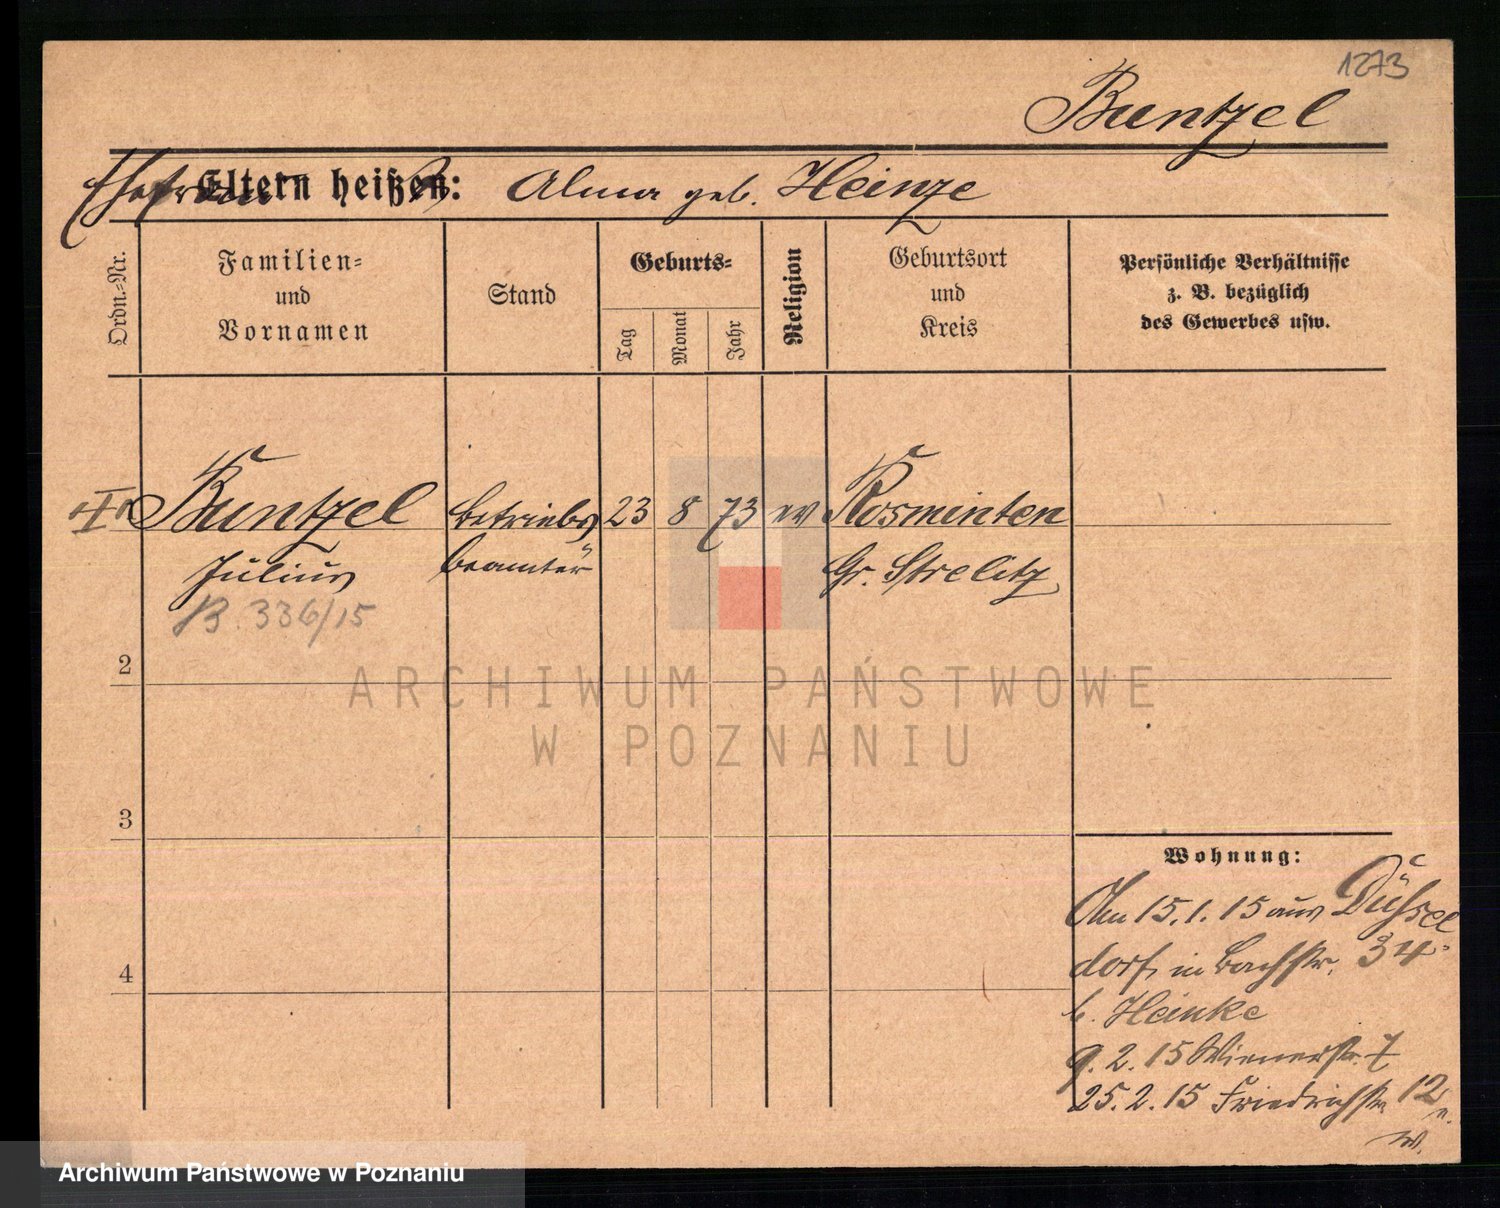 1273
Buntzel
Ehefrau Eltern heißen: Alma geb. Heinze
Ordn.-Nr.
Familien-
und
Vornamen
Stand
Geburts-
Tag
Monat
Jahr
Religion
Geburtsort
und
Kreis
Persönliche Verhältnisse
z. B. bezüglich
des Gewerbes usw.
Buntzel Betriebs 23 8 73 ev Rosminten
Julius beamter Gr. Strelitz
B. 336/15
2
ARCHIWUM PAŃSTWOWE
W POZNANIU
3
Wohnung:
Am 15.1.15 aus Düssel
dorf, in Bachstr. 34
b. Heinke
4
9.2.15 Wienerstr. 7
25.2.15 Friedrichstr 12
Archiwum Państwowe w Poznaniu